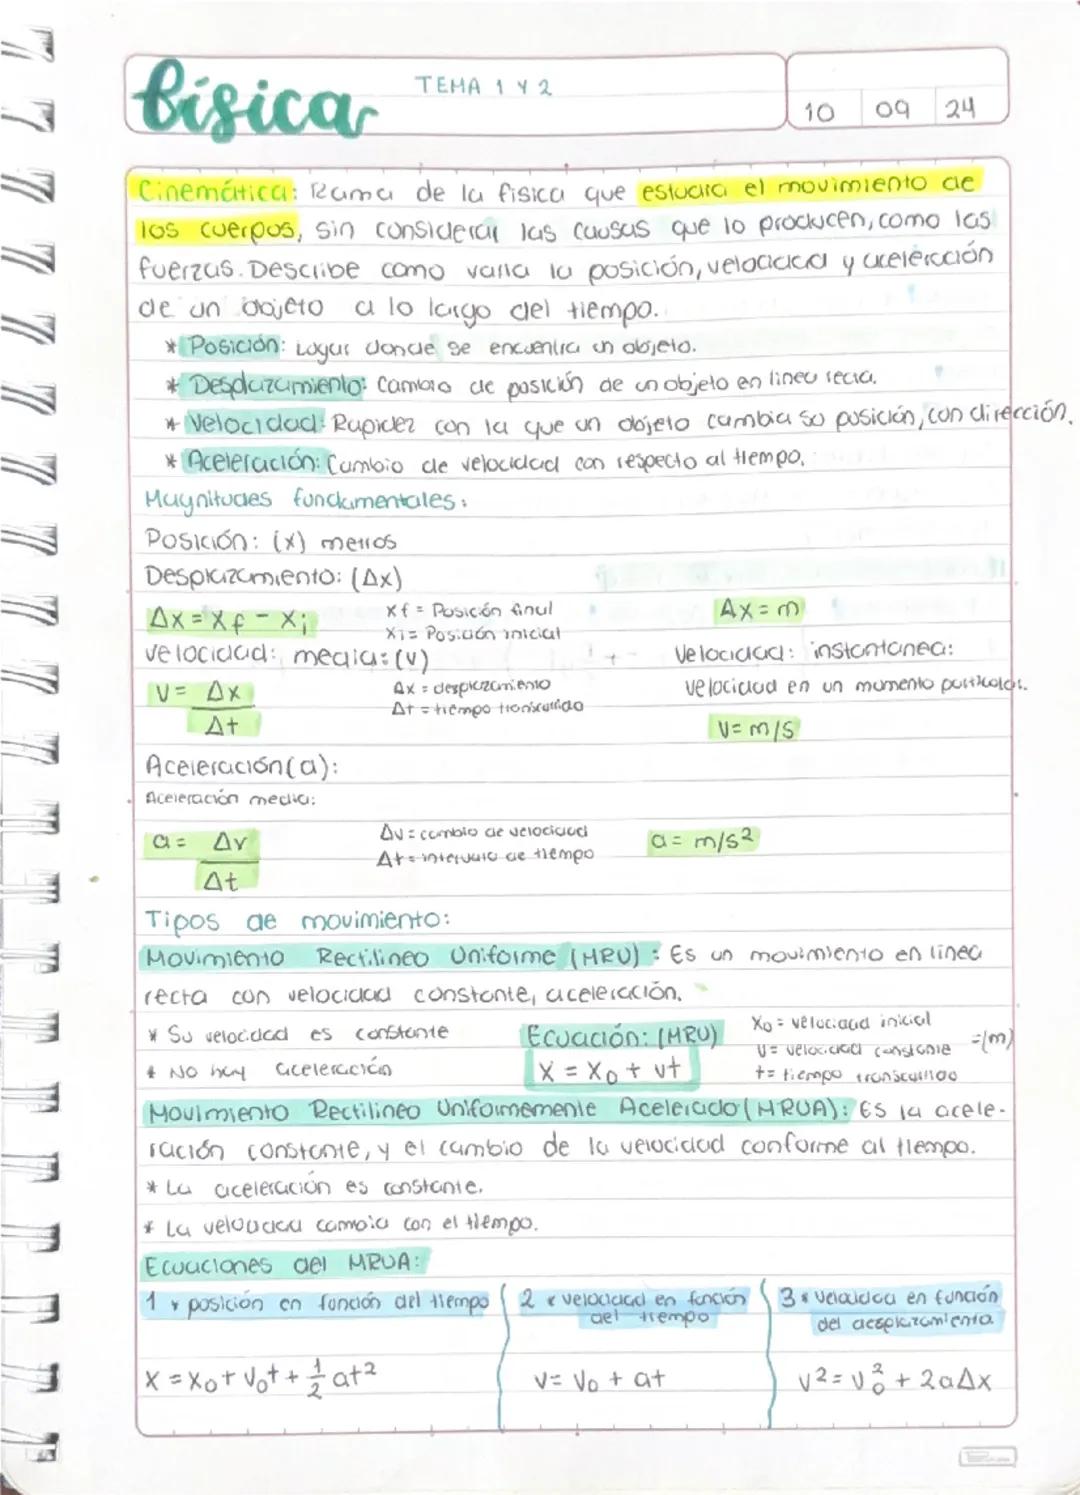 física
TEMA 1 Y 2
10 09 24
Cinemática: Rama de la física que estudia el movimiento de
los cuerpos, sin considerar las causas que lo producen, como las
fuerzas. Describe como varia la posición, velocidad y aceleración
de un objeto a lo largo del tiempo.
* Posición: Lugar donde se encuentra un objeto.
* Desplazamiento: Cambio de posición de un objeto en linea recta.
* Velocidad: Rapidez con la que un objeto cambia su posición, con dirección.
* Aceleración: Cambio de velocidad con respecto al tiempo.
Magnitudes fundamentales:
Posición: (x) metros
Desplazamiento: (Δx)
Δx = xf - xi
xf = Posición final
xi = Posición inicial
Δx = m
velocidad: media: (v)
Velocidad: instantanea:
V = Δx / Δt
Δx = desplazamiento
Δt = tiempo transcurrido
velocidad en un momento particular.
V = m/s
Aceleración (a):
Aceleración media:
a = Δv / Δt
Δv = cambio de velocidad
Δt = intervalo de tiempo
a = m/s²
Tipos de movimiento:
Movimiento Rectilineo Uniforme (MRU): Es un movimiento en linea
recta con velocidad constante, aceleración.
* Su velocidad es constante
* No hay aceleración
Ecuación: (MRU)
x = x₀ + vt
X₀ = velocidad inicial
V = velocidad constante =(m)
t = tiempo transcurrido
Movimiento Rectilineo Uniformemente Acelerado (MRUA): Es la acele-
ración constante, y el cambio de la velocidad conforme al tiempo.
* La aceleración es constante.
* La velocidad cambia con el tiempo.
Ecuaciones del MRUA:
1 * posición en función del tiempo
x = x₀ + v₀t + 1/2 at²
2 * velocidad en función
del tiempo
v = v₀ + at
3 * velocidad en función
del desplazamiento
v² = v₀² + 2aΔx